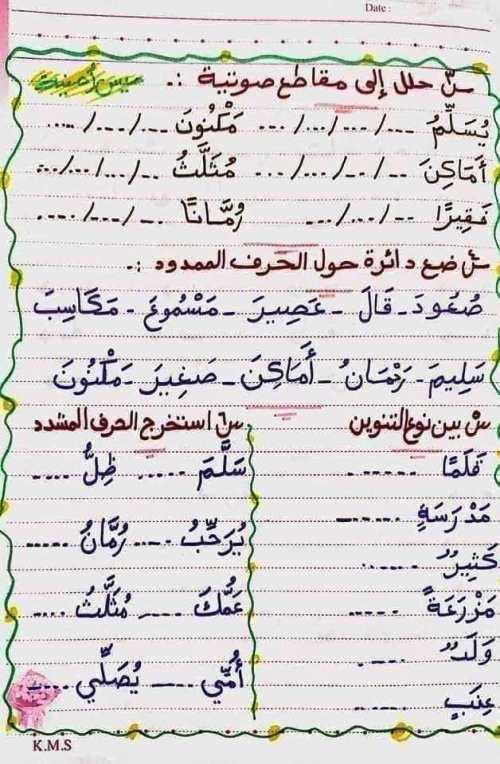 Date :
س٣ حلل إلى مقاطع صوتية :. ميس أمينة
يُسَلِّمُ .../.../.../... مَكْنُونَ .../.../....
أَمَاكِنَ .../.../.../... مُثَلَّثُ .../.../...
فَقِيرًا .../.../... رُمَّانًا .../.../...
س٤ ضع دائرة حول الحرف الممدود :.
صُعُودَ - قَالَ - عَصِيرَ - مَسْمُوعَ - مَكَاسِبَ
سَلِيمَ - رَحْمَانُ - أَمَاكِنَ - صَغِيرَ - مَكْنُونَ
س٥ بين نوع التنوين
قَلَمًا .......
مَدْرَسَةٍ .......
كَثِيرٌ ......
مَزْرَعَةً .....
وَلَدٌ .....
عِنَبٍ
س٦ استخرج الحرف المشدد
سَلَّمَ ..... ظِلُّ ....
يُرَحِّبُ .... رُمَّانُ .....
عَمُّكَ .... مُثَلَّثُ ....
أُمِّي .... يُصَلِّي ....
K.M.S